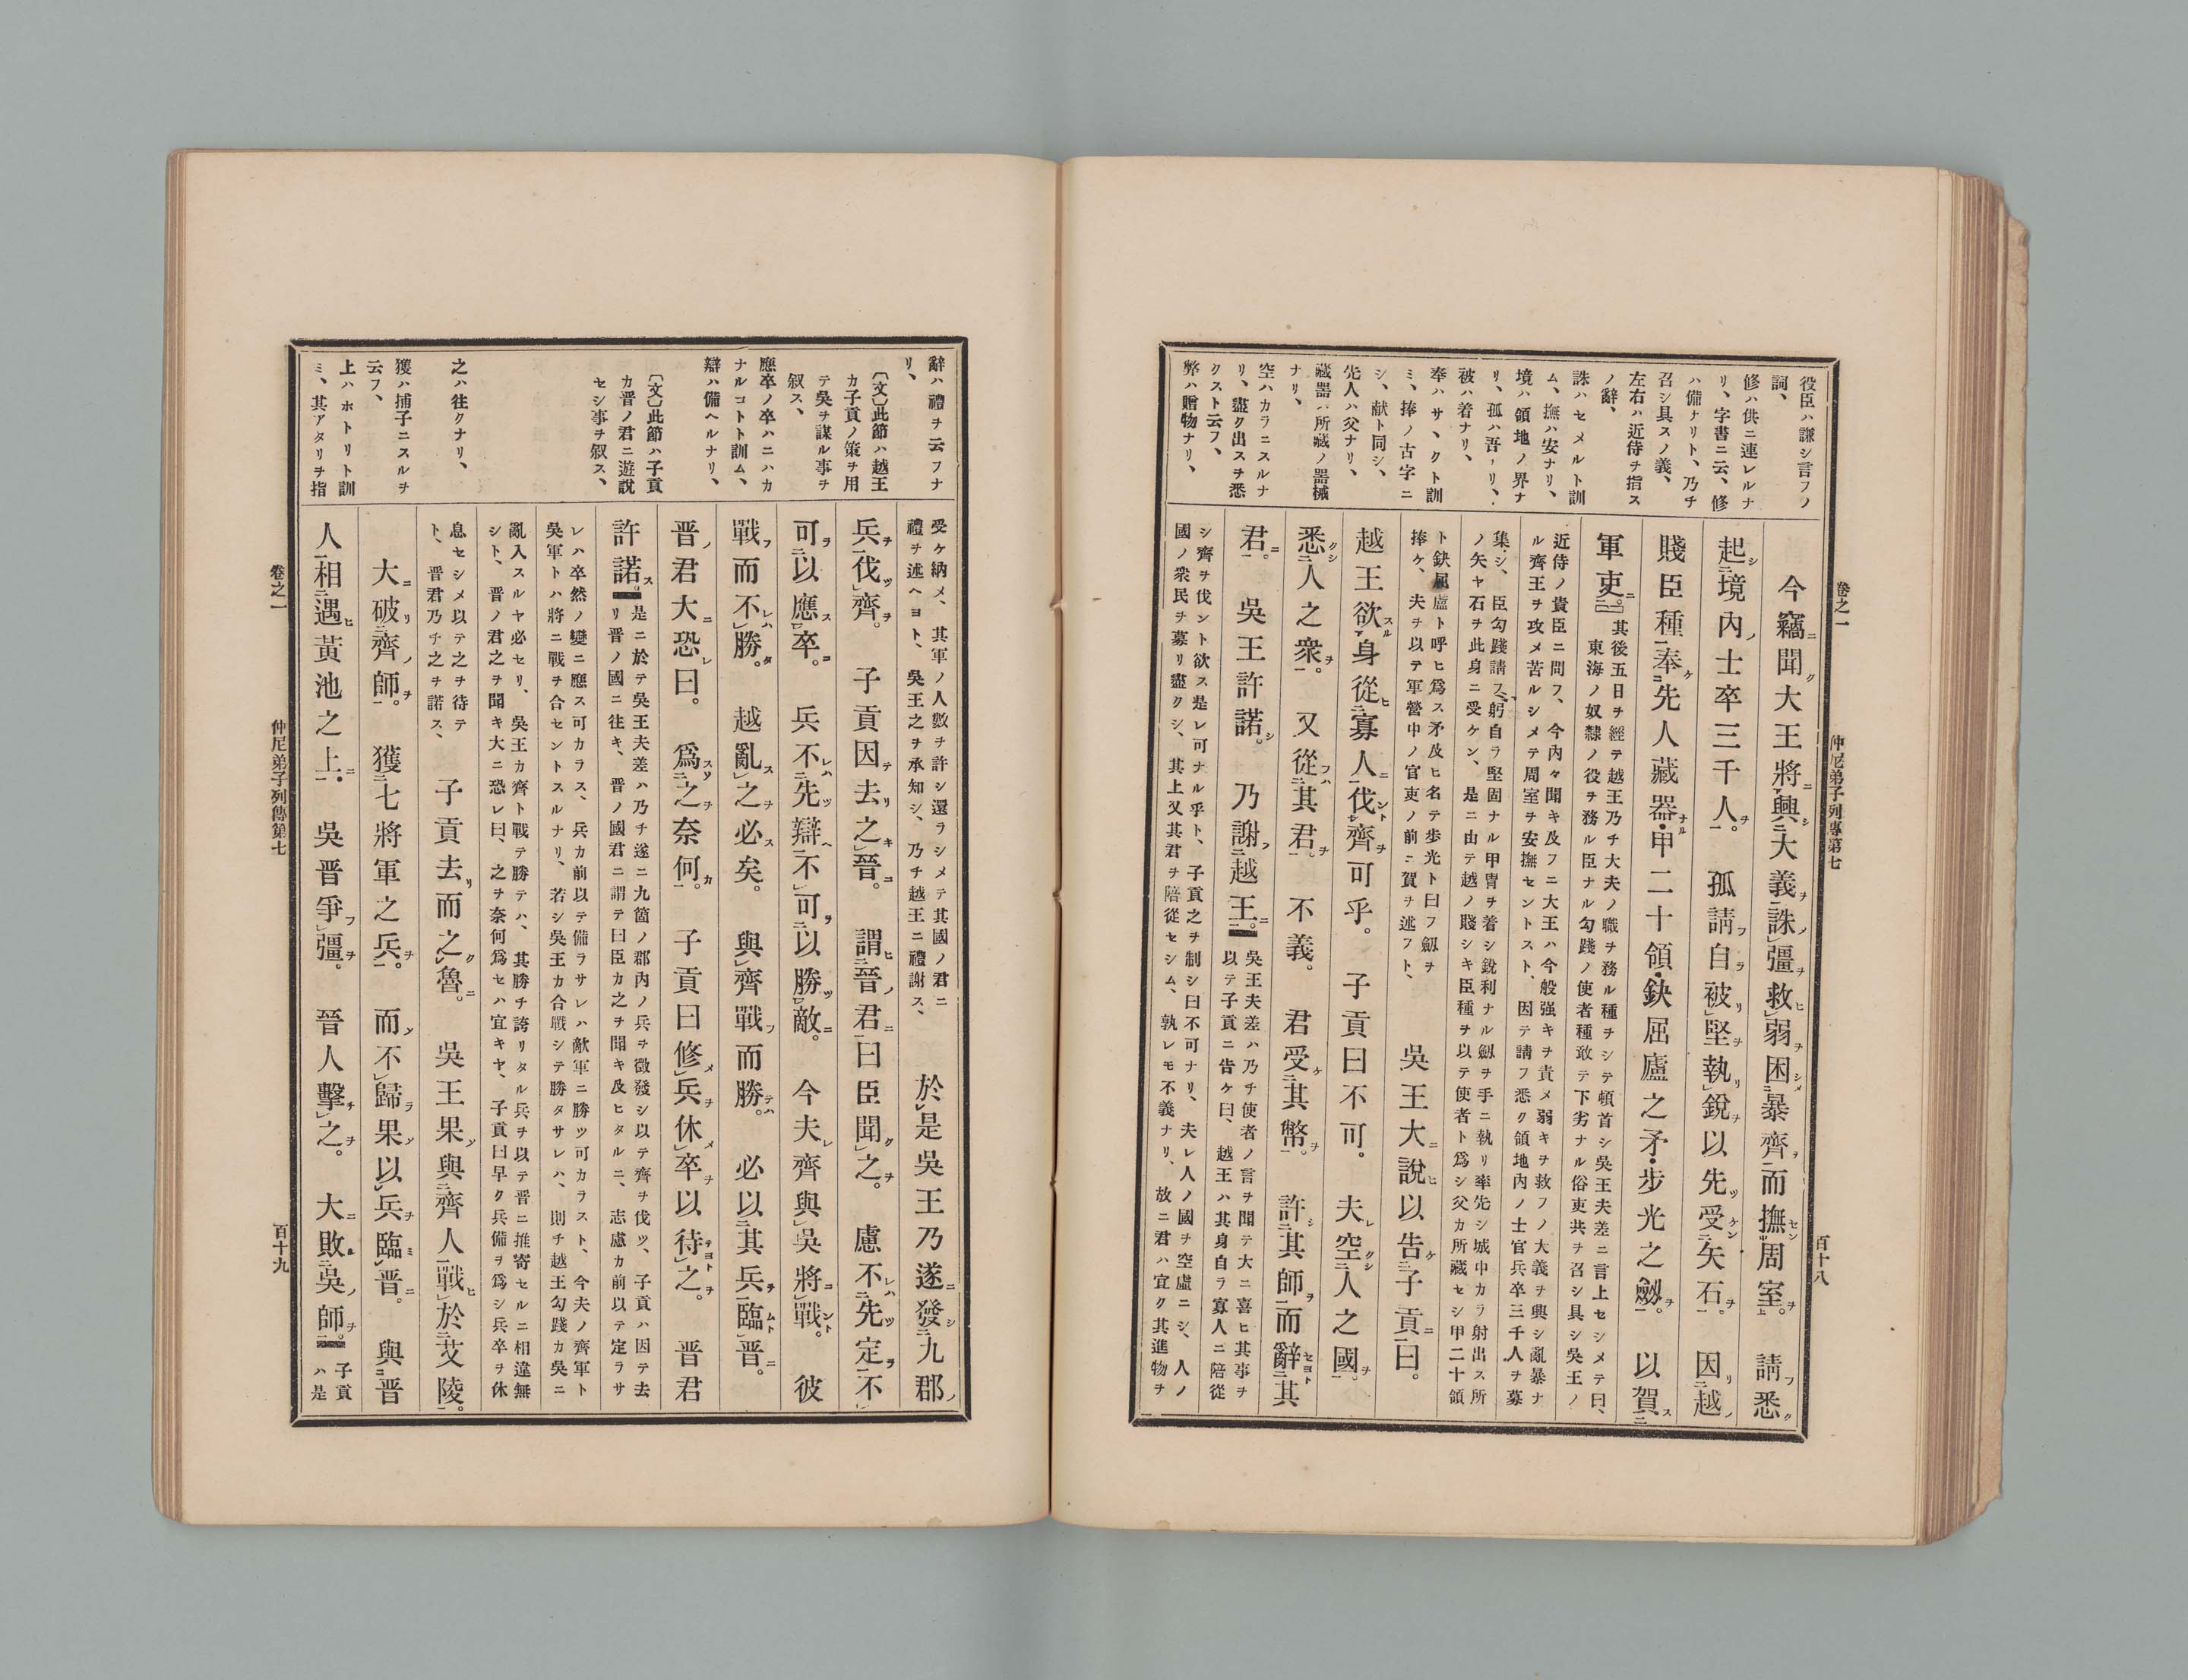 卷之一
仲尼弟子列傳第七
百十八
役臣ハ謙シ言フノ
詞、
修ハ供ニ連レルナ
リ、字書ニ云、修
ハ備ナリト、乃チ
召シ具スノ義、
左右ハ近侍ヲ指ス
ノ辭、
誅ハセメルト訓
ム、撫ハ安ナリ、
境ハ領地ノ界ナ
リ、孤ハ吾ナリ、
被ハ着ナリ、
奉ハサヽクト訓
ミ、捧ノ古字ニ
シ、献ト同シ、
先人ハ父ナリ、
藏器ハ所藏ノ器械
ナリ、
空ハカラニスルナ
リ、盡ク出スヲ悉
クスト云フ、
弊ハ贈物ナリ、
今竊ニ聞ク大王將ニ興シ大義ヲ誅ノ彊ヲ救ヒ弱ヲ困シメ暴齊ヲ而撫セン周室ヲ。請フ悉ク
起シ境內ノ士卒三千人ヲ。孤請フ自ラ被リ堅ヲ執リ銳ヲ以先ツ受ケン矢石ヲ。因リ越ノ
賤臣種奉ケ先人藏器ナル甲二十領・鈌屈廬之矛・步光之劔ヲ。以賀ス
軍吏ニ。其後五日ヲ經テ越王乃チ大夫ノ職ヲ務ル種ヲシテ頓首シ吳王夫差ニ言上セシメテ曰、
東海ノ奴隸ノ役ヲ務ル臣ナル勾踐ノ使者種敢テ下劣ナル俗吏共ヲ召シ具シ吳王ノ
近侍ノ貴臣ニ問フ、今內々聞キ及フニ大王ハ今般强キヲ責メ弱キヲ救フノ大義ヲ興シ亂暴ナ
ル齊王ヲ攻メ苦ルシメテ周室ヲ安撫セントスト、因テ請フ悉ク領地內ノ士官兵卒三千人ヲ募
集シ、臣勾踐請フ躬自ラ堅固ナル甲冑ヲ着シ銳利ナル劔ヲ手ニ執リ率先シ城中カラ射出ス所
ノ矢ヤ石ヲ此身ニ受ケン、是ニ由テ越ノ賤シキ臣種ヲ以テ使者ト爲シ父カ所藏セシ甲二十領
ト鈌屈盧ト呼ヒ爲ス矛及ヒ名テ步光ト曰フ劔ヲ
捧ケ、夫ヲ以テ軍營中ノ官吏ノ前ニ賀ヲ述フト、吳王大ニ說ヒ以告ケ子貢ニ曰。
越王欲スル身從ヒ寡人ニ伐ント齊ヲ可乎。子貢曰不可。夫レ空クシ人之國ヲ。
悉クシ人之衆ヲ。又從フハ其君ヲ。不義。君受ケ其幣ヲ。許シ其師ヲ而辭セヨト其
君ニ。吳王許諾シ。乃謝フ越王ニ。吳王夫差ハ乃チ使者ノ言ヲ聞テ大ニ喜ヒ其事ヲ
以テ子貢ニ告ケ曰、越王ハ其身自ラ寡人ニ陪從
シ齊ヲ伐ント欲ス是レ可ナル乎ト、子貢之ヲ制シ曰不可ナリ、夫レ人ノ國ヲ空虛ニシ、人ノ
國ノ衆民ヲ募リ盡クシ、其上又其君ヲ陪從セシム、孰レモ不義ナリ、故ニ君ハ宜ク其進物ヲ
辭ハ禮ヲ云フナ
リ、
〔文〕此節ハ越王
カ子貢ノ策ヲ用
テ吳ヲ謀ル事ヲ
叙ス、
應卒ノ卒ハニハカ
ナルコトト訓ム、
辯ハ備ヘルナリ、
〔文〕此節ハ子貢
カ晋ノ君ニ遊說
セシ事ヲ叙ス、
之ハ往クナリ、
獲ハ捕子ニスルヲ
云フ、
上ハホトリト訓
ミ、其アタリヲ指
受ケ納メ、其軍ノ人數ヲ許シ還ラシメテ其國ノ君ニ
禮ヲ述ヘヨト、吳王之ヲ承知シ、乃チ越王ニ禮謝ス、於是吳王乃遂ニ發シ九郡ノ
兵ヲ伐ツ齊ヲ。子貢因テ去リ之キ晉ニ。謂ヒ晉ノ君ニ曰臣聞ク之ヲ。慮不レハ先ツ定ラ不
可ヲ以應ス卒ニ。兵不レハ先ツ辯ヘ不可ヲ以勝ツ敵ニ。今夫レ齊與吳將ニ戰ント。彼
戰フ而不レハ勝タ。越亂ス之ヲ必ス矣。與齊戰フ而勝テハ。必以其兵ヲ臨ムト晋ニ。
晋ノ君大ニ恐レ曰。爲スソ之ヲ奈何カ。子貢曰修メ兵ヲ休メ卒ヲ以待テヨト之ヲ。晋君
許諾ス。是ニ於テ吳王夫差ハ乃チ遂ニ九箇ノ郡內ノ兵ヲ徵發シ以テ齊ヲ伐ツ、子貢ハ因テ去
リ晋ノ國ニ往キ、晋ノ國君ニ謂テ曰臣カ之ヲ聞キ及ヒタルニ、志慮カ前以テ定ラサ
レハ卒然ノ變ニ應ス可カラス、兵カ前以テ備ラサレハ敵軍ニ勝ツ可カラスト、今夫ノ齊軍ト
吳軍トハ將ニ戰ヲ合セントスルナリ、若シ吳王カ合戰シテ勝タサレハ、則チ越王勾踐カ吳ニ
亂入スルヤ必セリ、吳王カ齊ト戰テ勝テハ、其勝ヲ誇リタル兵ヲ以テ晋ニ推寄セルニ相違無
シト、晋ノ君之ヲ聞キ大ニ恐レ曰、之ヲ奈何爲セハ宜キヤ、子貢曰早ク兵備ヲ爲シ兵卒ヲ休
息セシメ以テ之ヲ待テ
ト、晋君乃チ之ヲ諾ス、子貢去リ而之ク魯ニ。吳王果ソ與齊人戰ヒ於艾陵。
大ニ破リ齊ノ師ヲ。獲七將軍之兵ヲ。而ソ不歸ラ果ソ以兵ヲ臨ミ晋ニ。與晋
人相遇ヒ黃池之上ニ。吳晋爭フ彊ヲ。晉人擊チ之ヲ。大ニ敗ル吳ノ師ヲ。子貢
ハ是
卷之一
仲尼弟子列傳第七
百十九